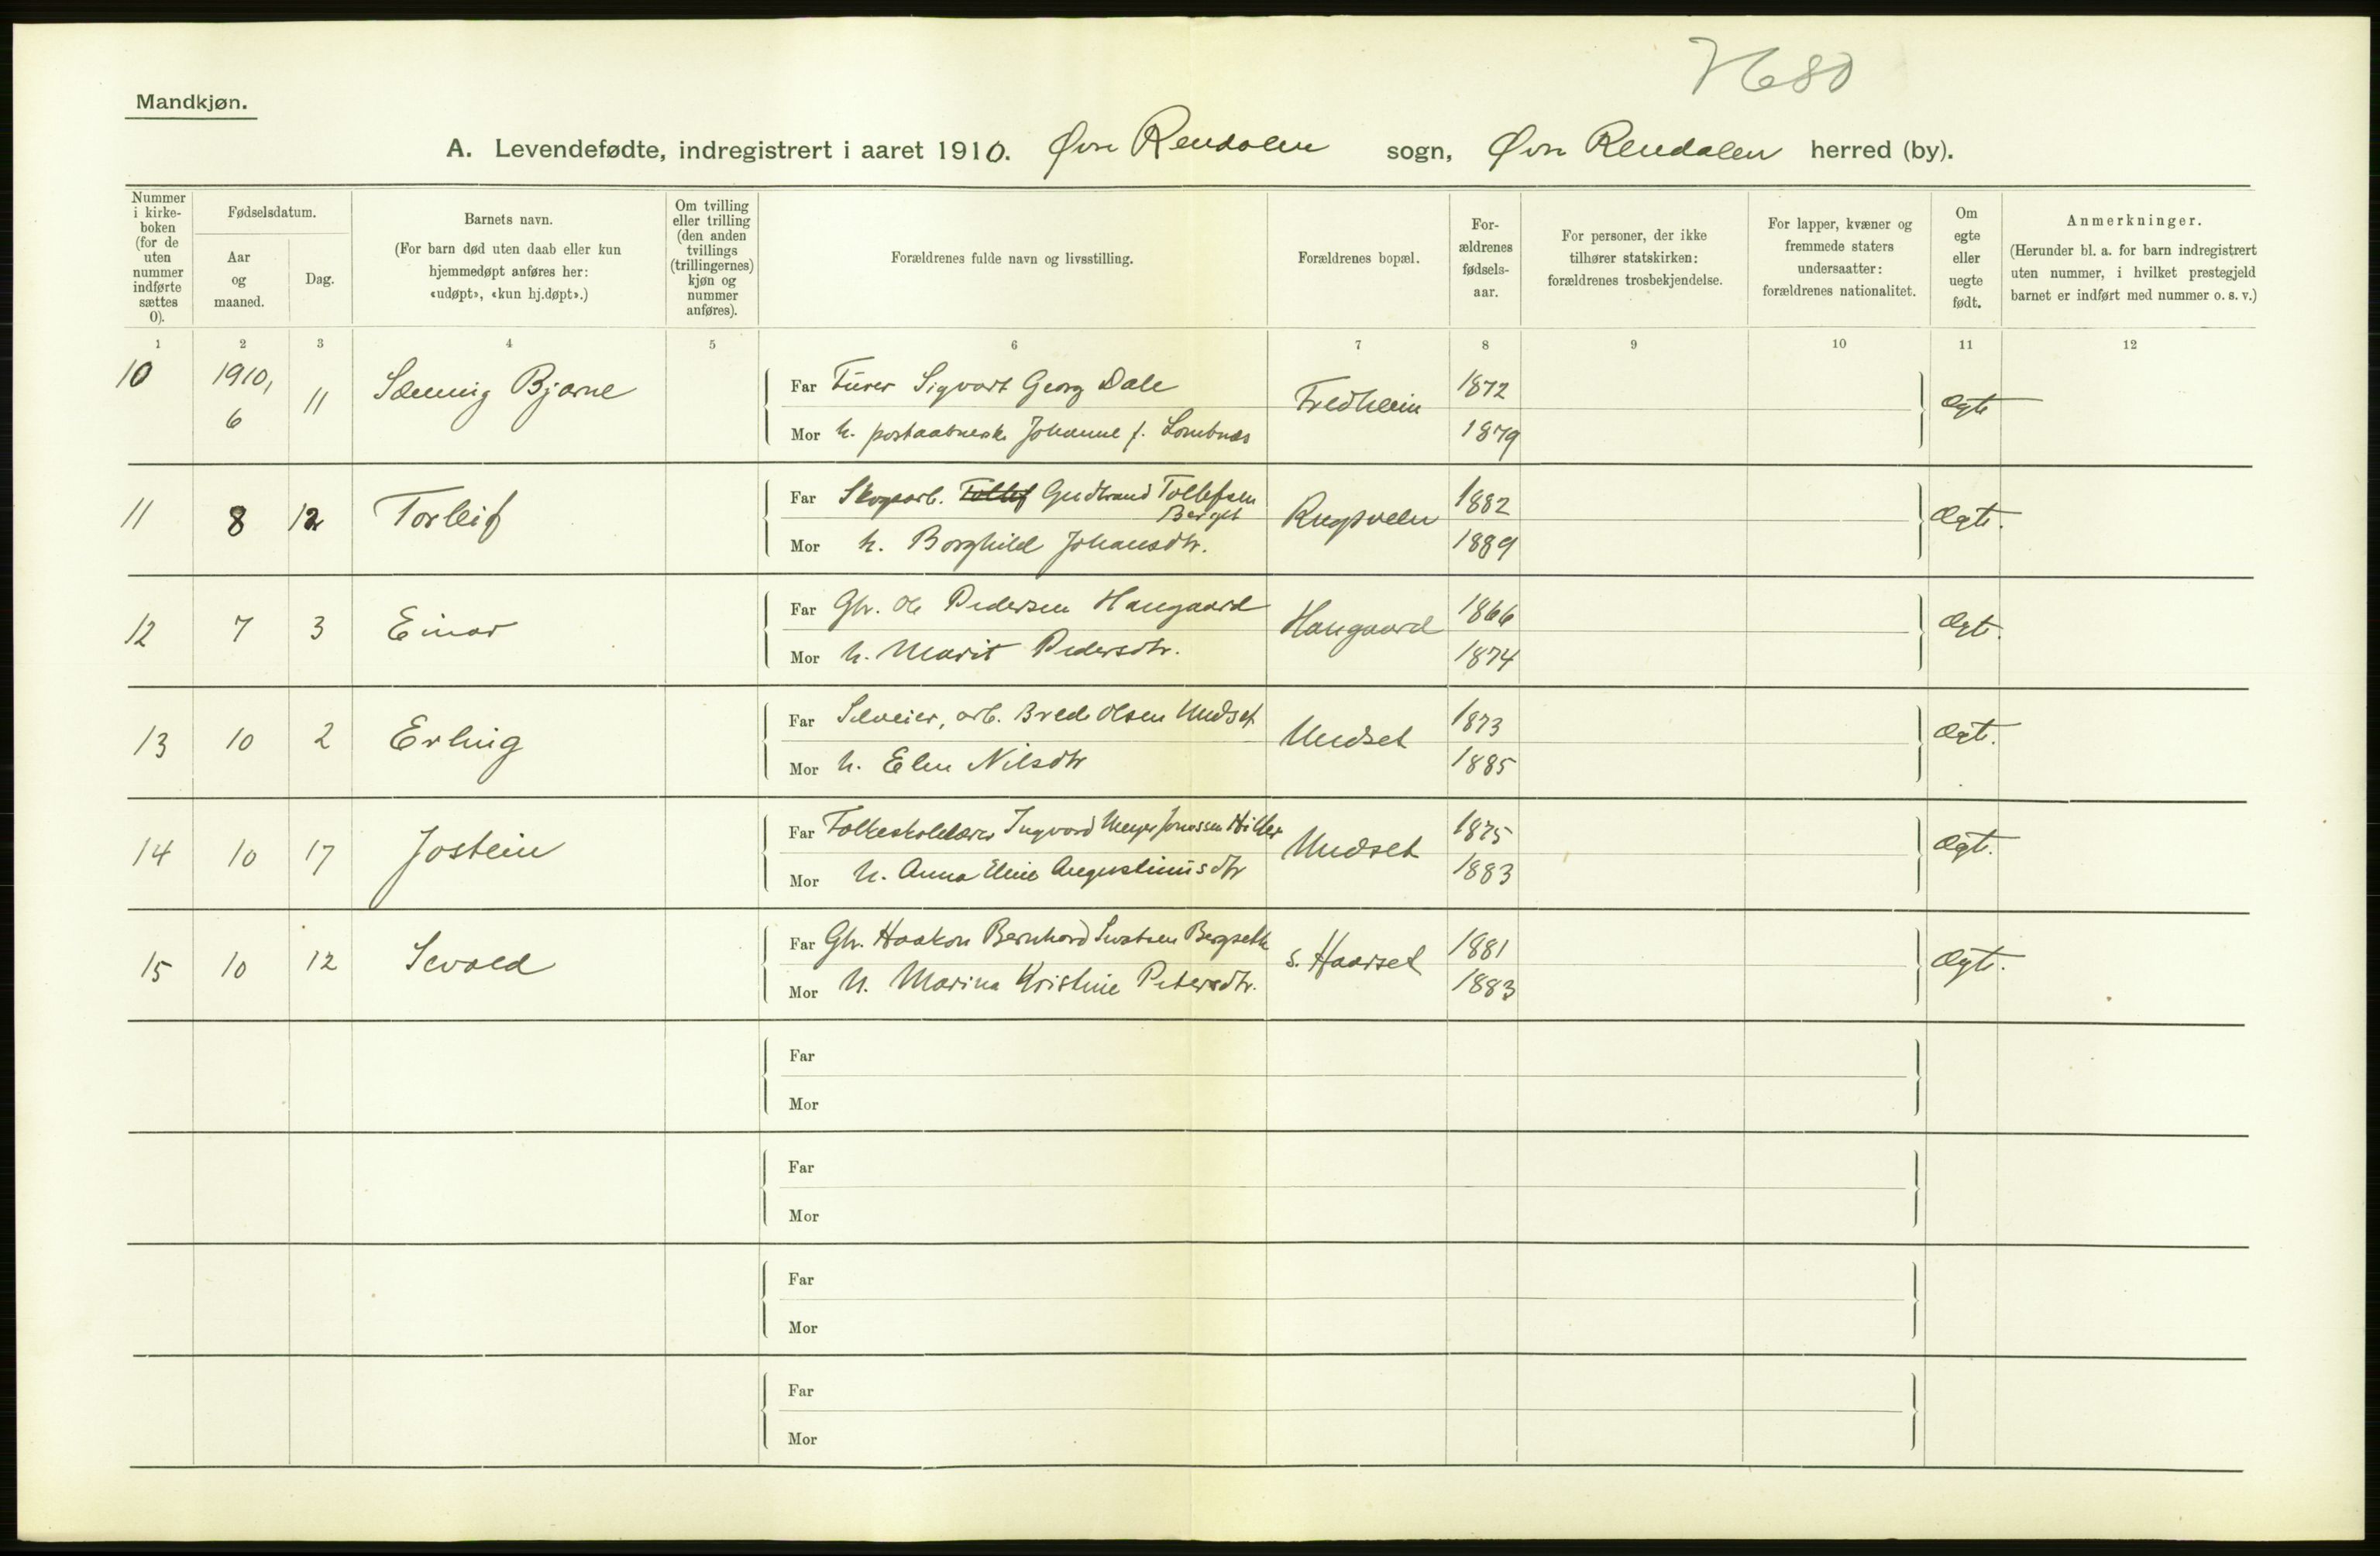 7680
Mandkjøn.
A. Levendefødte, indregistrert i aaret 1910. Øvre Rendalen sogn, Øvre Rendalen herred (by).
Nummer i kirke- boken (for de uten nummer indførte sættes 0).
Fødselsdatum.
Aar og maaned.
Dag.
Barnets navn.
(For barn død uten daab eller kun hjemmedøpt anføres her: «udøpt», «kun hj.døpt».)
Om tvilling eller trilling (den anden tvillings (trillingernes) kjøn og nummer anføres).
Forældrenes fulde navn og livsstilling.
Forældrenes bopæl.
For- ældrenes fødsels- aar.
For personer, der ikke tilhører statskirken: forældrenes trosbekjendelse.
For lapper, kvæner og fremmede staters undersaatter: forældrenes nationalitet.
Om egte eller uegte født.
Anmerkninger.
(Herunder bl. a. for barn indregistrert uten nummer, i hvilket prestegjeld barnet er indført med nummer o. s. v.)
1 2 3 4 5 6 7 8 9 10 11 12
10 1910, 6 11 Sæming Bjarne
Far Furer Sigvart Georg Dale Fredheim 1872 Ægte
Mor h. postaabnerske Johanne f. Lombnæs 1879
11 8 12 Torleif
Far Skogsarb. Tollef Gudbrand Tollefsen Berget 1882 Ægte.
Mor h. Borghild Johansdtr. 1889
12 7 3 Einar
Far Gbr. Ole Pedersen Haugaard Haugaard 1866 Ægte.
Mor h. Marit Pedersdtr. 1874
13 10 2 Erling
Far Selveier, arb. Brede Olsen Undset Undset 1873 Ægte.
Mor h. Elen Nilsdtr 1885
14 10 17 Jostein
Far Folkeskolelærer Ingvard Meyer Jonassen Hiller Undset 1875 Ægte.
Mor h. Anna Eline Augustinusdtr 1883
15 10 12 Sevald
Far Gbr. Haakon Bernhard Bergseth s. Haarset 1881 Ægte.
Mor h. Marina Kristine Petersdtr. 1883
Far
Mor
Far
Mor
Far
Mor
Far
Mor